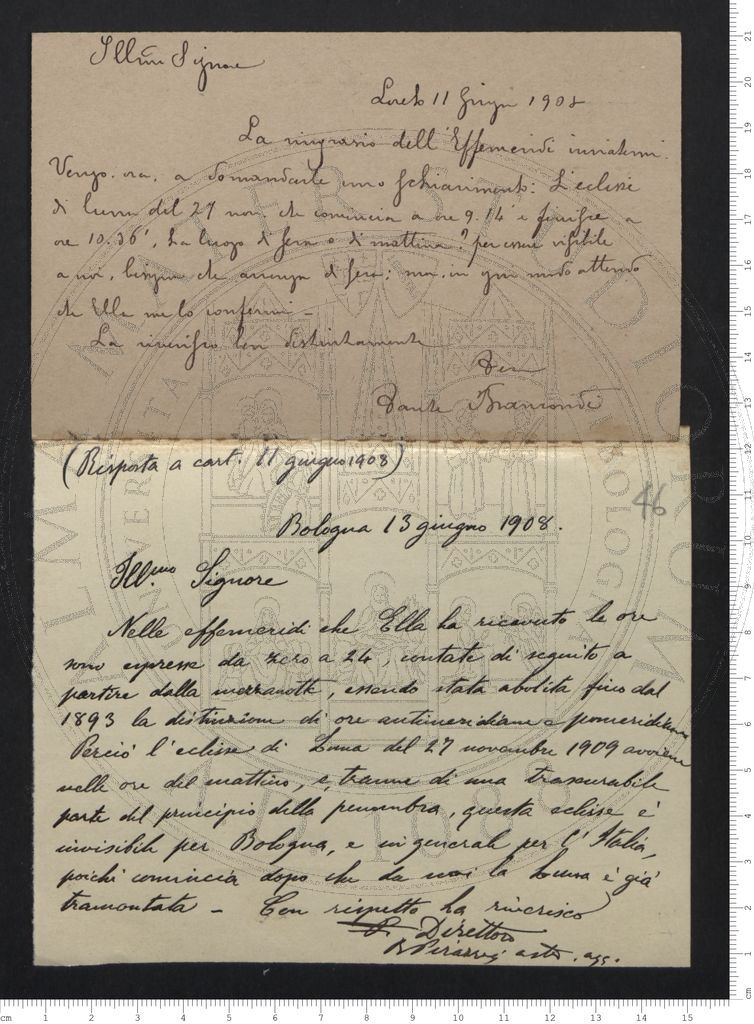 Illmo Signore
Loreto 11 giugn 1908
La ringrazio dell'Effemeridi inviatemi.
Vengo. ora. a domandarle uno schiarimento: L'eclisse
di luna del 27 nov. che comincia a ore 9.14' e finisce a
ore 10.36', ha luogo di sera o di mattina? per essere visibile
a noi, bisogna che avvenga di sera; ma, in ogni modo attendo
che Ella me lo confermi -
La riverisco ben distintamente
Dev
Dante Bramondi
(Risposta a cart. 11 giugno 1908)
46
Bologna 13 giugno 1908.
Ill.mo Signore
Nelle effemeridi che Ella ha ricevuto le ore
sono espresse da zero a 24, contate di seguito a
partire dalla mezzanotte, essendo stata abolita fino dal
1893 la distinzione di ore antimeridiane e pomeridiane
Perciò l'eclisse di Luna del 27 novembre 1909 avviene
nelle ore del mattino, e, tranne di una trascurabile
parte del principio della penombra, questa eclisse è
invisibile per Bologna, e in generale per l'Italia,
poichè comincia dopo che da noi la Luna è già
tramontata - Con rispetto la riverisco
Direttore
astr. agg.
ALMA MATER STUDIORUM
UNIVERSITA DI BOLOGNA
A.D. 1088
cm 1 2 3 4 5 6 7 8 9 10 11 12 13 14 15
cm 1 2 3 4 5 6 7 8 9 10 11 12 13 14 15 16 17 18 19 20 21